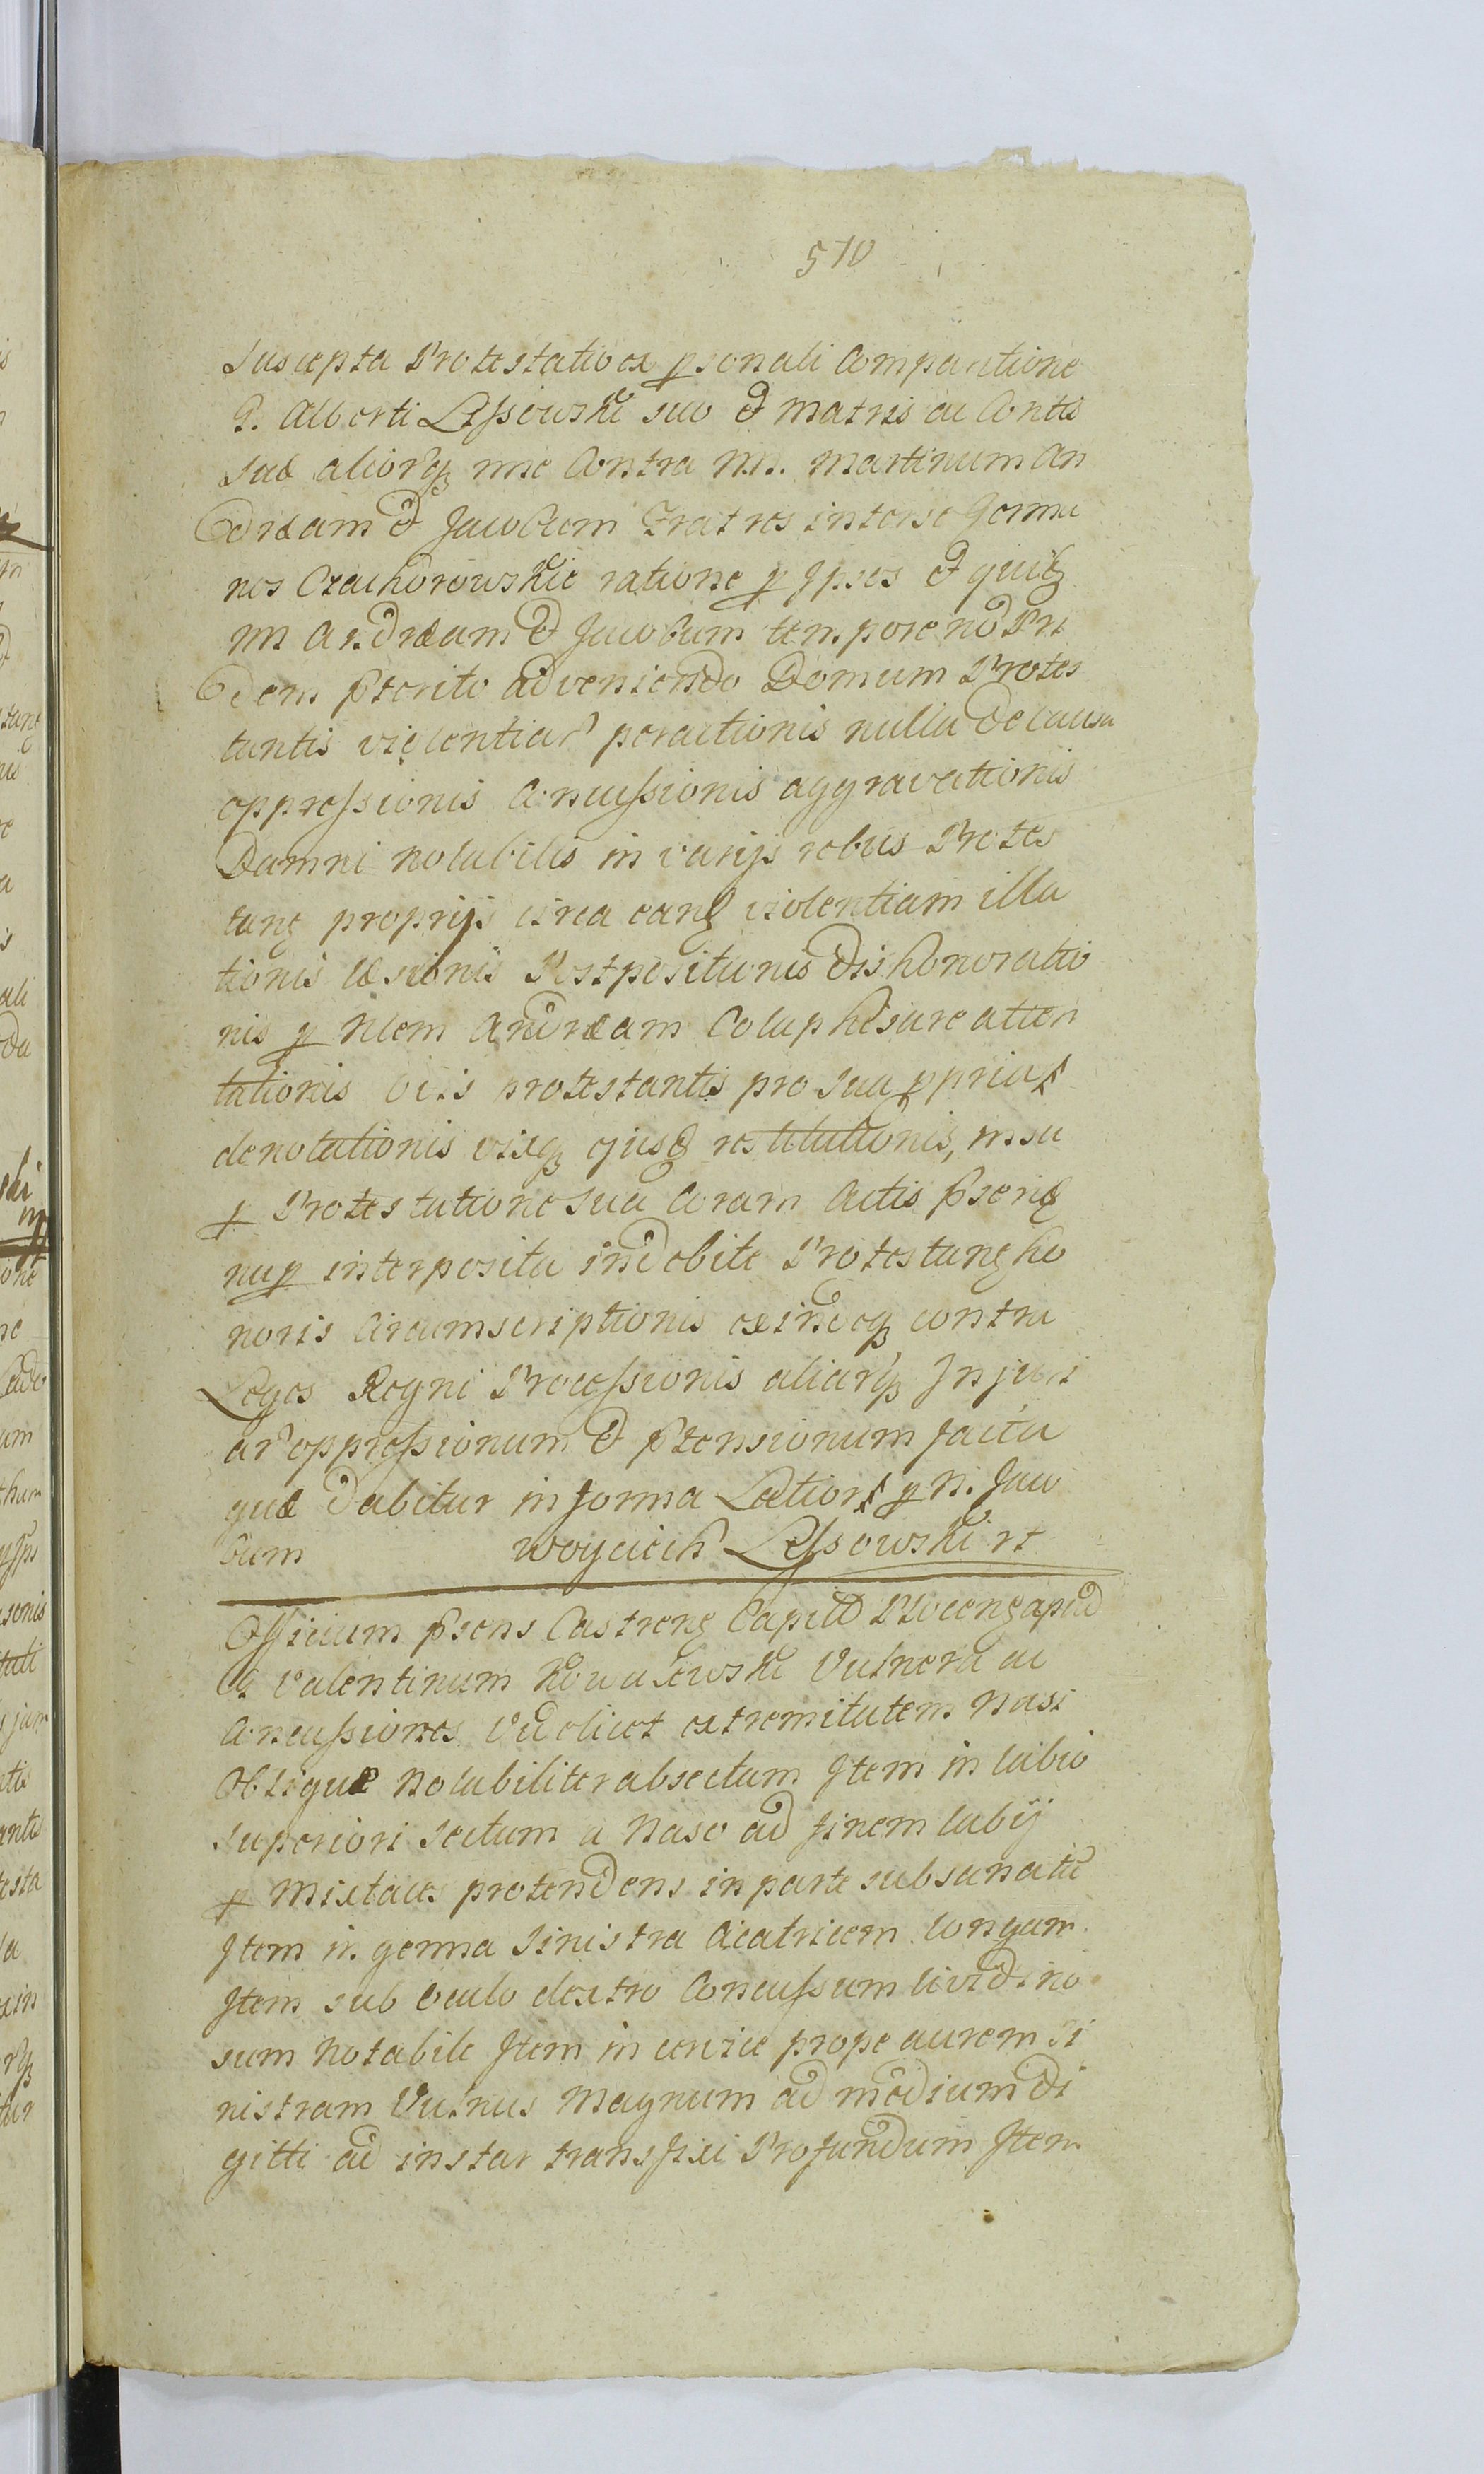 510
Suscepta Protestatio ex psonali Comparitione
G. Alberti Lessowski suo et Matris ac Contis
suae aliorq nne Contra NN. Martinum An
dream et Jacobum Fratres interse Germa
nos Czachorowskie ratione p Ipsos et quidz
NN Andream et Jacobum tempore nod Pri
dem pterito adveniendo Domum Protes
tantis violentiar peractionis nulla de causa
oppressionis Concussionis aggravationis
Damni notabilis in varijs rebus Protes
tang proprijs circa eand violentiam illa
tionis laesionis Postpositionis dishonoratio
nis p Nlem Andream Colaphisare atten
tationis protestantis pro sua ppria
denotationis visq ejusd restitutionis, in su
p Protestatione sua Coram Actis psent
nup interposita indebite Protestang ho
noris Circumscriptionis exindeq contra
Leges Regni Processionis aliarq Injuri
ar oppressionum et ptensionum facta
quae dabitur in forma Latiori p N. Jaco
bum Woyciech Lessowski rt
Officium psens Castreng Capitt Ploceng apud
G. Valentinum Kowalewski Vulnera ac
Concussiones Videlicet extremitatem Nasi
Oblique Notabiliter absectam Item in labio
superiori sectum a Naso ad finem labij
p Mixtaces protendens in parte subsanatu
Item in genna sinistra Cicatricem longam
Item sub oculo dextro Concussum lividino
sum Notabile Item in cervice prope aurem si
nistram Vulnus Magnum ad medium di
gitti ad instar transfixi Profundum Item